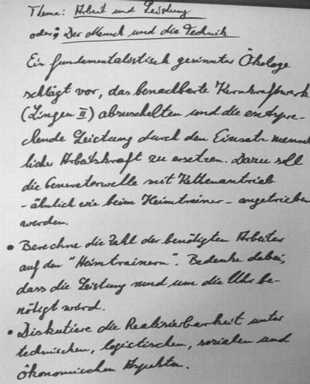 Thema: Arbeit und Leistung
oder: Der Mensch und die Technik
Ein fundamentalistisch gesinnter Ökologe
schlägt vor, das benachbarte Kernkraftwerk
(Lingen II) abzuschalten und die entspre-
chende Leistung durch den Einsatz mensch
licher Arbeitskraft zu ersetzen. Dazu soll
die Generatorwelle mit Kettenantrieb
- ähnlich wie beim Heimtrainer - angetrieben
werden.
• Berechne die Zahl der benötigten Arbeiter
auf den "Heimtrainern". Bedenke dabei,
dass die Leistung rund um die Uhr be-
nötigt wird.
• Diskutiere die Realisierbarkeit unter
technischen, logistischen, sozialen und
ökonomischen Aspekten.